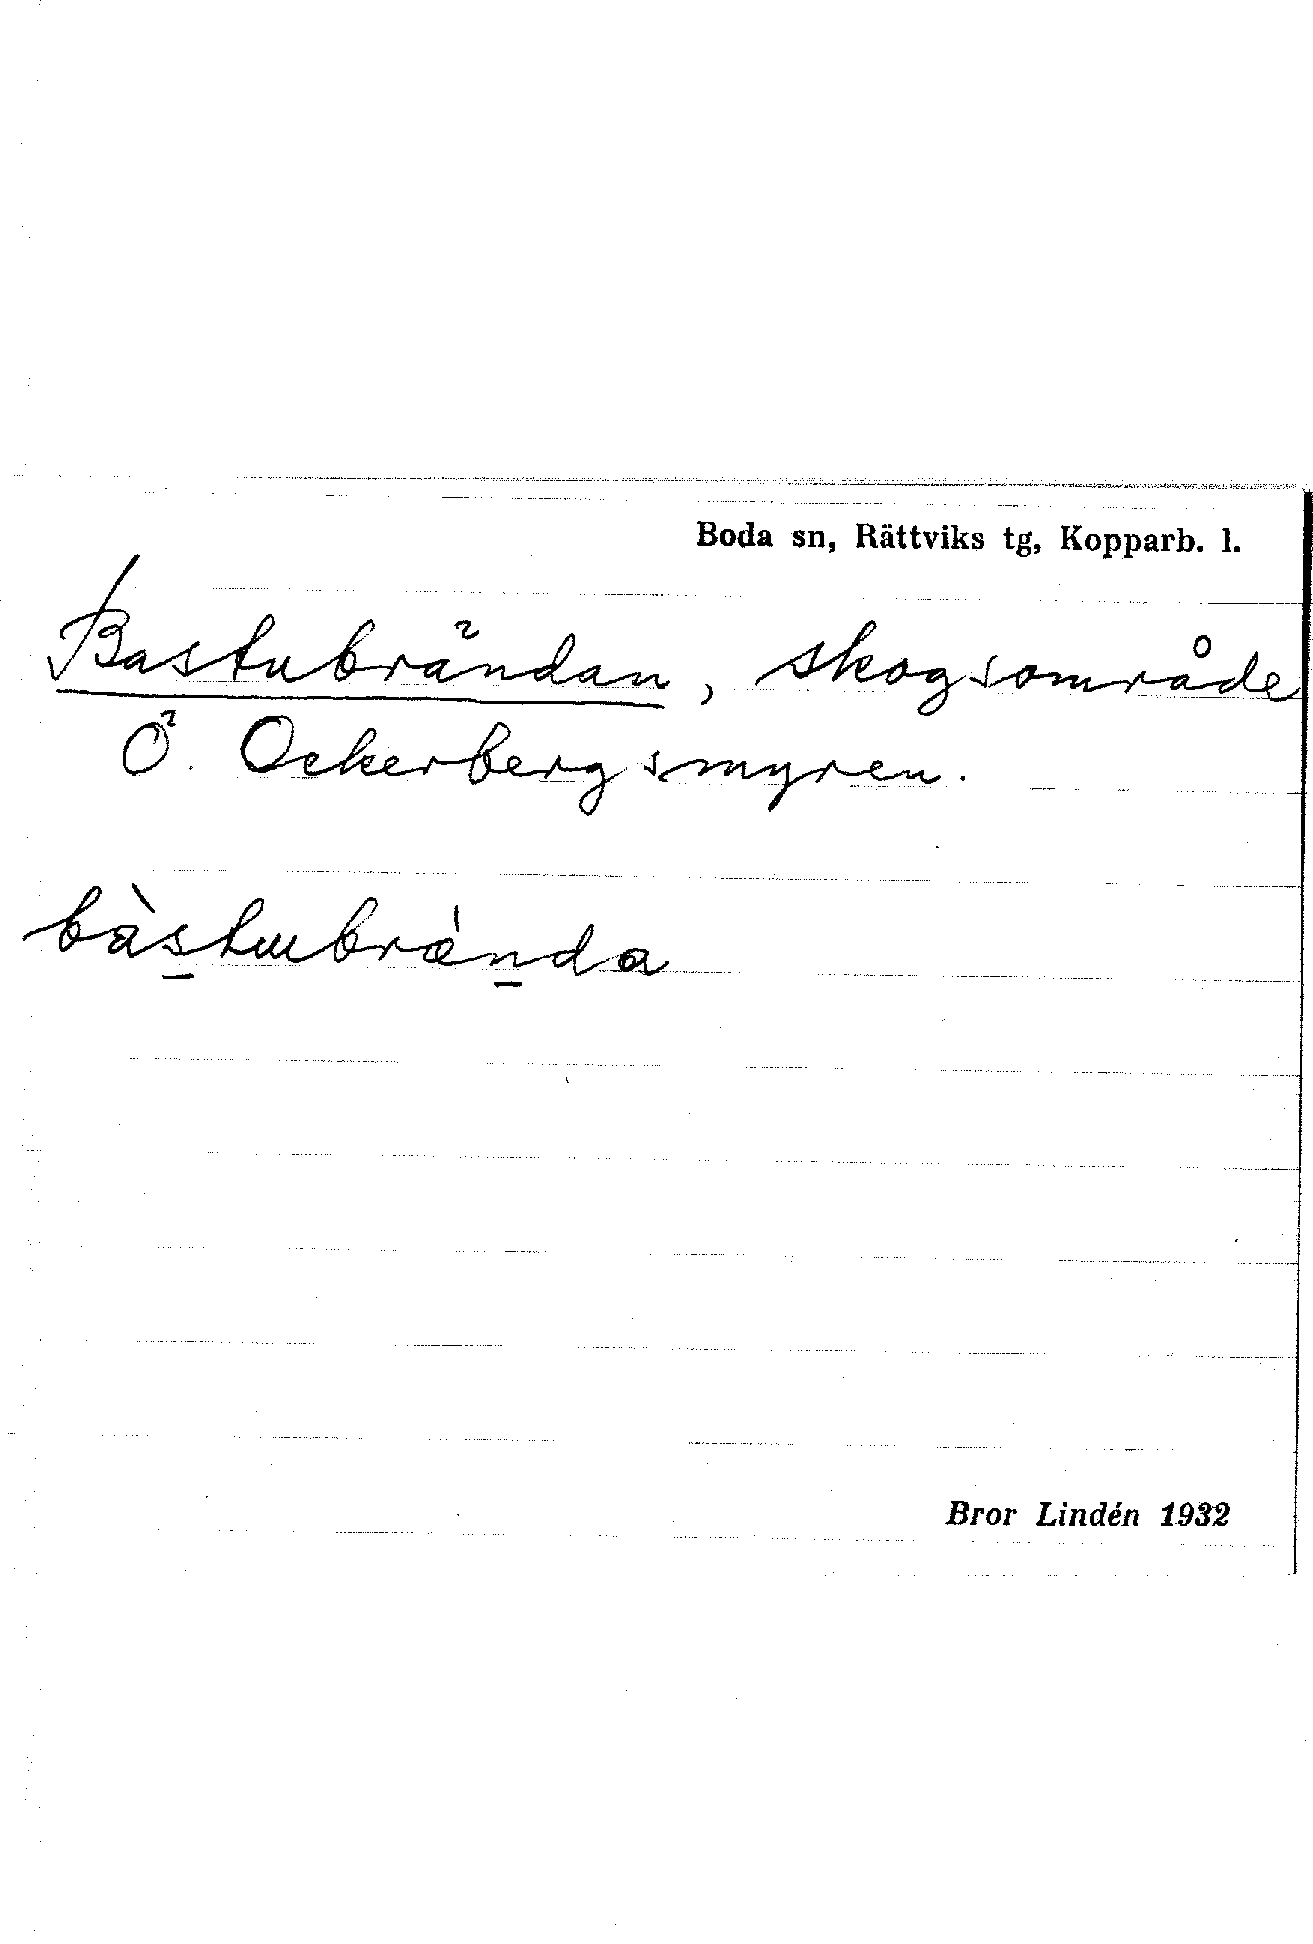 Boda sn, Rättviks tg, Kopparb. l.
Bastubrändan, skogsområde
Ö. Ockerbergsmyren.
bàstɯbrǽnda
Bror Lindén 1932